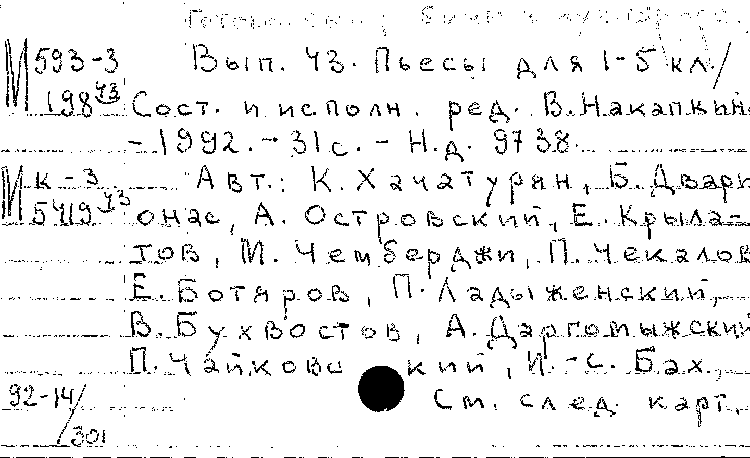 Вып. 43. Пьесы для 1-5 кл/
М 593-3
198 43
Сост. и исполн. ред. В.Накапкин
- 1992. - 31с. - Н.д. 9738.
М К-3
5419 43
Авт.: К. Хачатурян, Б. Двари-
онас, А. Островский, Е. Крыла-
тов, М. Чемберджи, П. Чекалов
Е. Ботяров, П. Ладыженский,
В. Бухвостов, А. Даргомыжский
П. Чайковский, И.-С. Бах,
См. след. карт.
92-14/
/301